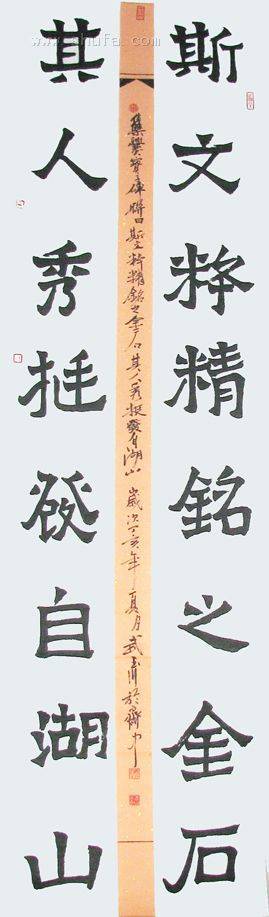 斯文粹精銘之金石
集爨寶 聯曰斯文粹精銘之金石其人秀挺發自湖山 歲次丁亥年夏月武玉川於齋中
其人秀挺發自湖山